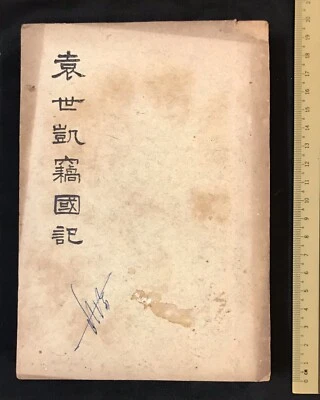 袁世凱竊國記